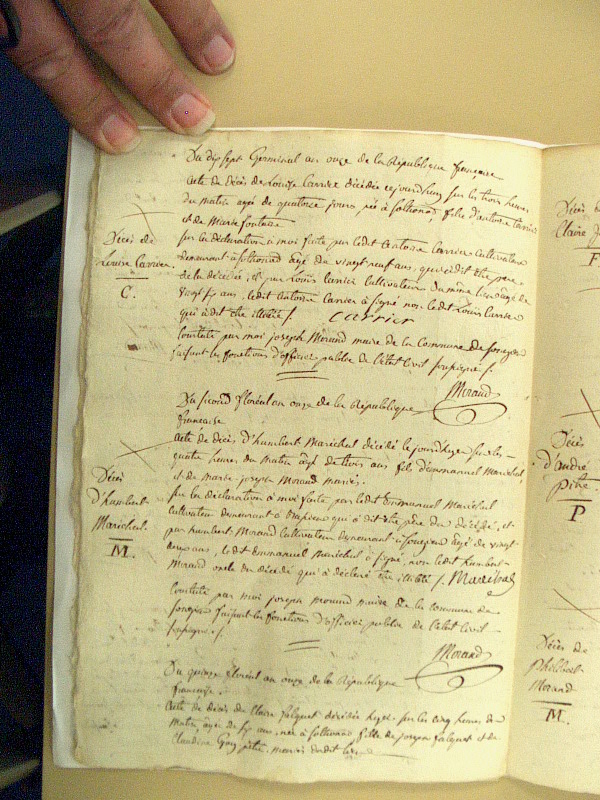 Du dix sept Germinal an onze de la République française
acte de décès de Louise Carrier décédée cejourdhuy sur les trois heures
du matin agée de quatorze jours née à follionas, fille d'antoine Carrier
et de Marie fontaine
sur la déclaration à moi faite par ledit Antoine Carrier Cultivateur
demeurant à follionas agé de vingt neuf ans, qui a dit être père
de la décédée, et par Louis Carrier Cultivateur du même lieu agé de
vingt ans, ledit Antoine Carrier à signé non ledit Louis Carrier
qui a dit être illitéré /. Carrier
Constaté par moi joseph Morand maire de la Commune de
faisant les fonctions d'officier public de l'état Civil soussigné /.
Morand
Décès de
Louise Carrier.
C.
Du second floréal an onze de la République
française
acte de décès d'humbert Maréchal décédé le jourdhuy sur les
quatre heures du matin agé de trois ans fils d'emmanuel Maréchal,
et de marie joseph Morand mariés.
sur la déclaration à moi faite par ledit Emmanuel Maréchal
cultivateur demeurant à qui à dit être père du décédé, et
par humbert Morand cultivateur demeurant à agé de vingt
deux ans, ledit Emmanuel maréchal à signé, non ledit humbert
Morand oncle du décédé qui a déclaré être illitéré /. Maréchal
Constaté par moi joseph morand maire de la commune de
faisant les fonctions d'officier public de l'état Civil
soussigné /.
Morand
Décès
D'humbert
Maréchal.
M.
Du quinze floréal an onze de la République
française.
acte de décès de Claire falquet décédée hyer sur les cinq heures du
matin agée de ans, née à follionas fille de joseph falquet et de
Claudine mariés dudit lieu
Décès
Claire
F
Décès
d'andré
P
Décès de
Philibert
Morand
M.